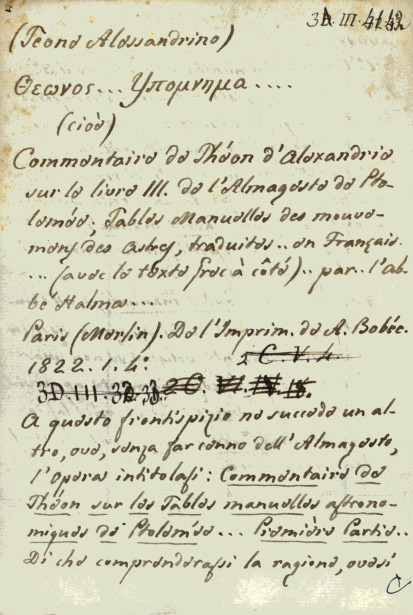 3D. III.
(Teone Alessandrino)
Θεωνος... Υπομνημα....
(cioè)
Commentaire de Théon d'Alexandrie
sur le livre III. de l'Almageste de Pto-
lomée; Tables Manuelles des mouve-
mens des Astres, traduites.. en Français.
... (avec le texte grec à côté).. par.. l'ab-
bé Halma...
Paris (Merlin). De l'Imprim. de A. Bobée.
2 C. V. 4
1822. 1. 4°:
3D. III 2 C.
A questo frontispizio ne succede un al-
tro, ove, senza far cenno dell'Almagesto,
l'Opera intitolasi: Commentaire de
Théon sur les Tables manuelles astrono-
miques de Ptolomée... Première Partie..
Di che comprenderassi la ragione, ovesi